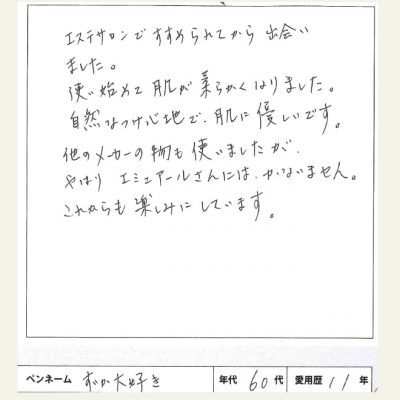 エステサロンですすめられてから出会い
ました。
使い始めて肌が柔らかくなりました。
自然なつけ心地で、肌に優しいです。
他のメーカーの物も使いましたが、
やはりエミュアールさんには、かないません。
これからも楽しみにしています。
ペンネーム ずか大好き 年代 60代 愛用歴 11年